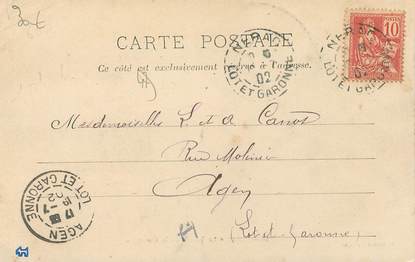 30€
CARTE POSTALE
Ce côté est exclusivement réservé à l'adresse.
NERAC
02
LOT ET GARONNE
10
Mesdemoiselles L. et A. Canot
Rue Molinié
Agen
(Lot et Garonne)
AGEN
17 7
02
LOT ET GARONNE